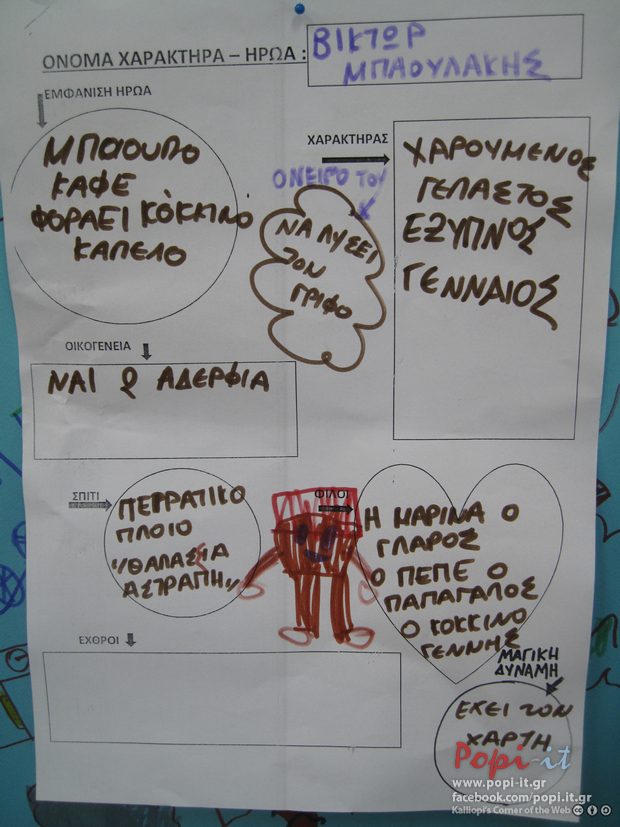 ΟΝΟΜΑ ΧΑΡΑΚΤΗΡΑ – ΗΡΩΑ :
ΒΙΚΤΩΡ
ΜΠΑΟΥΛΑΚΗΣ
ΕΜΦΑΝΙΣΗ ΗΡΩΑ
ΜΠΑΟΥΛΟ
ΚΑΦΕ
ΦΟΡΑΕΙ ΚΟΚΚΙΝΟ
ΚΑΠΕΛΟ
ΟΝΕΙΡΟ ΤΟΥ
ΝΑ ΛΥΣΕΙ
ΤΟΝ
ΓΡΙΦΟ
ΧΑΡΑΚΤΗΡΑΣ
ΧΑΡΟΥΜΕΝΟΣ
ΓΕΛΑΣΤΟΣ
ΕΞΥΠΝΟΣ
ΓΕΝΝΑΙΟΣ
ΟΙΚΟΓΕΝΕΙΑ
ΝΑΙ 2 ΑΔΕΡΦΙΑ
ΣΠΙΤΙ
ΠΕΙΡΑΤΙΚΟ
ΠΛΟΙΟ
"ΘΑΛΑΣΣΙΑ
ΑΣΤΡΑΠΗ"
ΦΙΛΟΙ
Η ΜΑΡΙΝΑ Ο
ΓΛΑΡΟΣ
Ο ΠΕΠΕ Ο
ΠΑΠΑΓΑΛΟΣ
Ο ΚΟΚΚΙΝΟ
ΓΕΝΝΗΣ
ΕΧΘΡΟΙ
ΜΑΓΙΚΗ
ΔΥΝΑΜΗ
ΕΧΕΙ ΤΟΝ
ΧΑΡΤΗ
Popi-it
www.popi-it.gr
facebook.com/popi.it.gr
Kalliopi's Corner of the Web